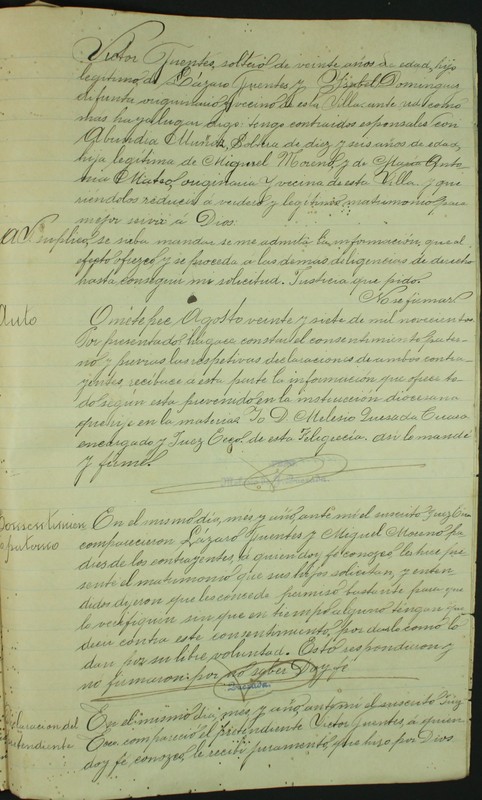 Victor Fuentes, soltero de veinte años de edad, hijo
legitimo de Lázaro Fuentes y Ysabel Dominguez
difunta originario y vecino de esta Villa ante ud como
mas haya lugar digo: tengo contraidos esponsales con
Abundia Muñiz, Soltera de diez y seis años de edad,
hija legítima de Miguel Moreno y de Maria Anto
nia Mateo, originaria y vecina de esta Villa. Y que
riendolos reducir á verdero y legítimo matrimonio para
mejor servir á Dios.
A V. suplico, se sirva mandar se me admita la información, que al
efecto ofrezco y se proceda a las demas diligencias de derecho
hasta conseguir mi solicitud. Justicia que pido.
No se firmar
Auto
Ometepec, Agosto veinte y siete de mil novecientos
Por presentado: hagase constar el consentimiento pater
no y previas las respetivas declaraciones de ambos contra
yentes, recibase a esta parte la información que ofrece to
do según esta prevenido en la instrucción diocesana
que rije en la materia. Yo D. Melesio Quesada Cura
encargado y Juez Ecco. de esta Feligrecia. asi lo mandé
y firmé.
Consentimien
to paterno
En el mismo dia, mes y año, ante mi el suscrito Juez Ecco
comparecieron Lázaro Fuentes y Miguel Moreno pa
dres de los contrayentes, á quienes doy fé conozco les hice pre
sente el matrimonio que sus hijos solicitan, y enten
didos dijeron que les concede permiso bastante para que
lo verifiquen sin que en tiempo alguno tengan que
decir contra este consentimiento, por darlo como lo
dan por su libre voluntad. Esto respondieron y
no firmaron: por no saber Doy fé
Quesada.
Declaracion del
pretendiente
En el mismo dia, mes y año, ante mi el suscrito Juez
Ecco. compareció el pretendiente Victor Fuentes, á quien
doy fé, conozco, le recibí juramento, que hizo por Dios